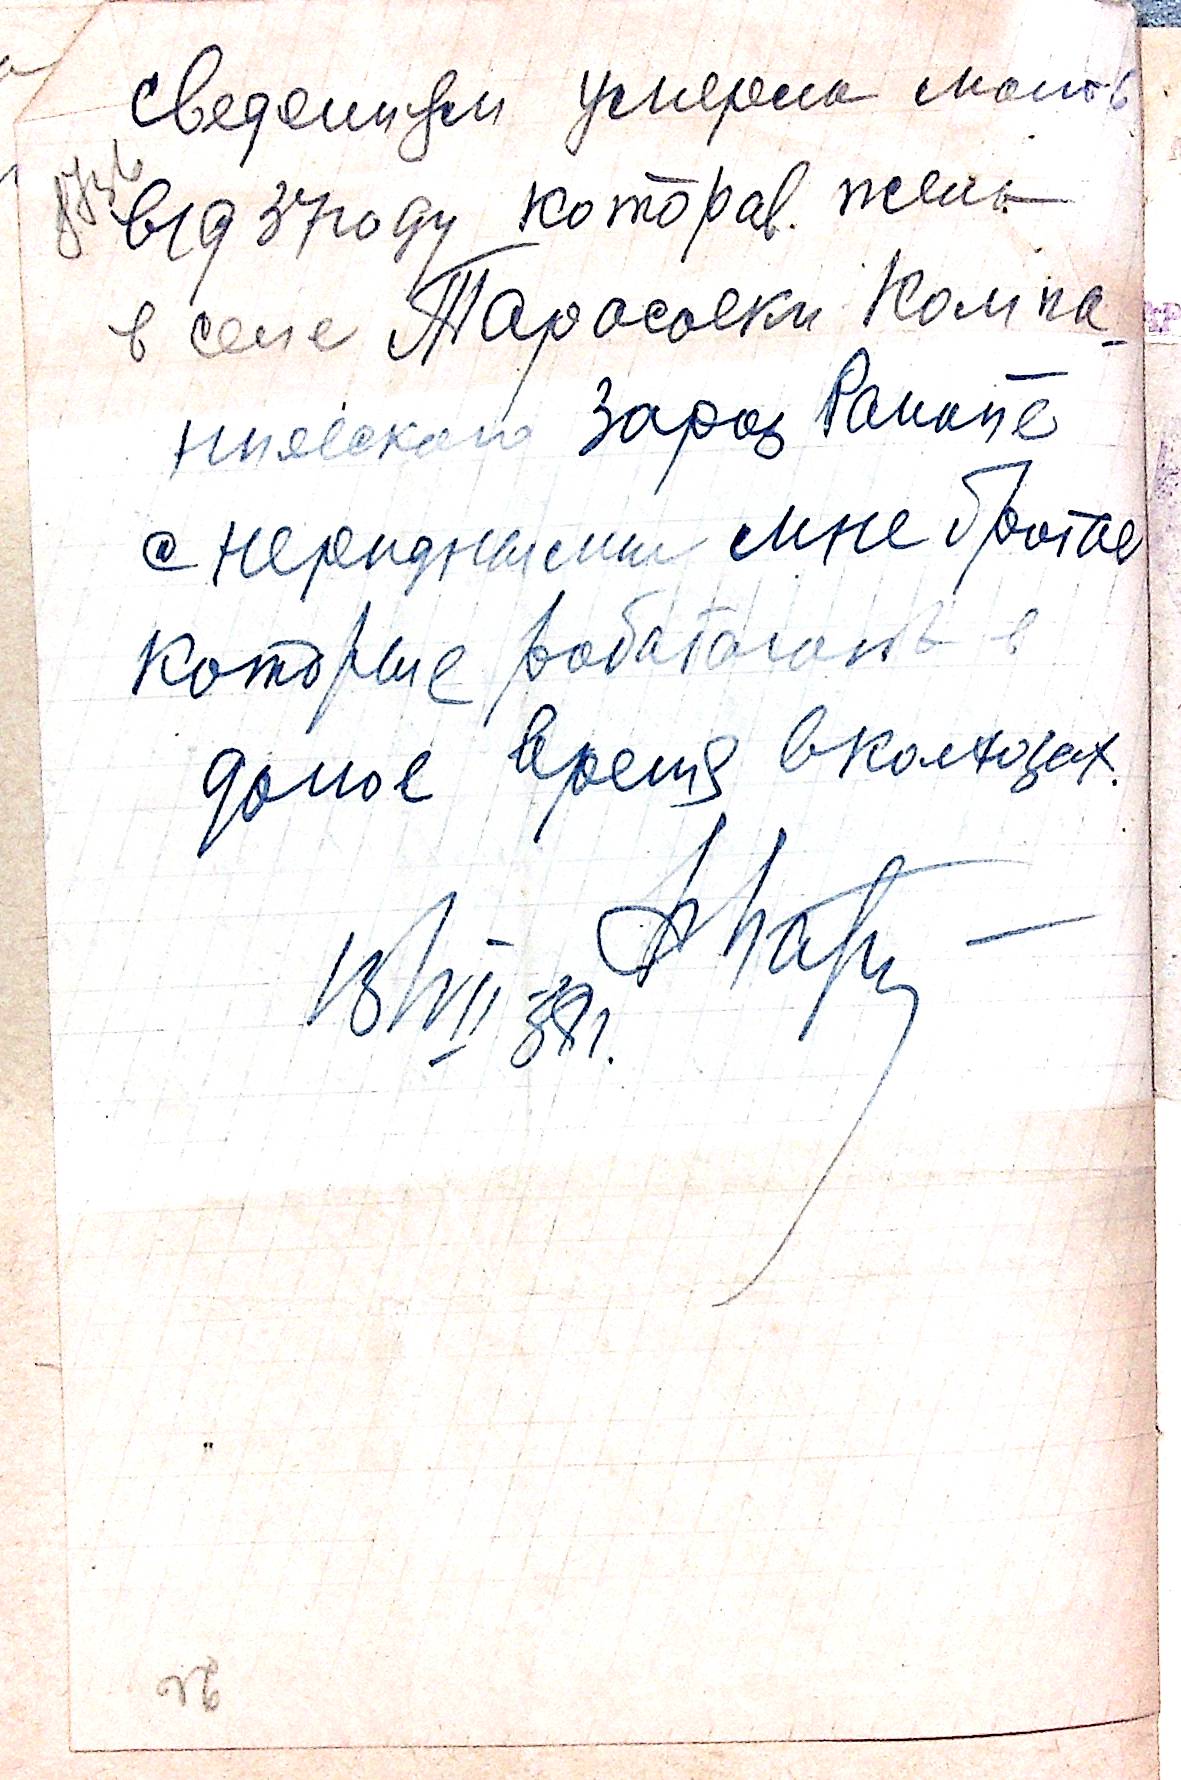 сведениям умерла мать
в 1937 году которая жела
в селе Тарасовки Компа-
ниевского зароз Районе
с нероднымы мне братам
которые работают в
даное время в колхозах.
13/VII 38 г.